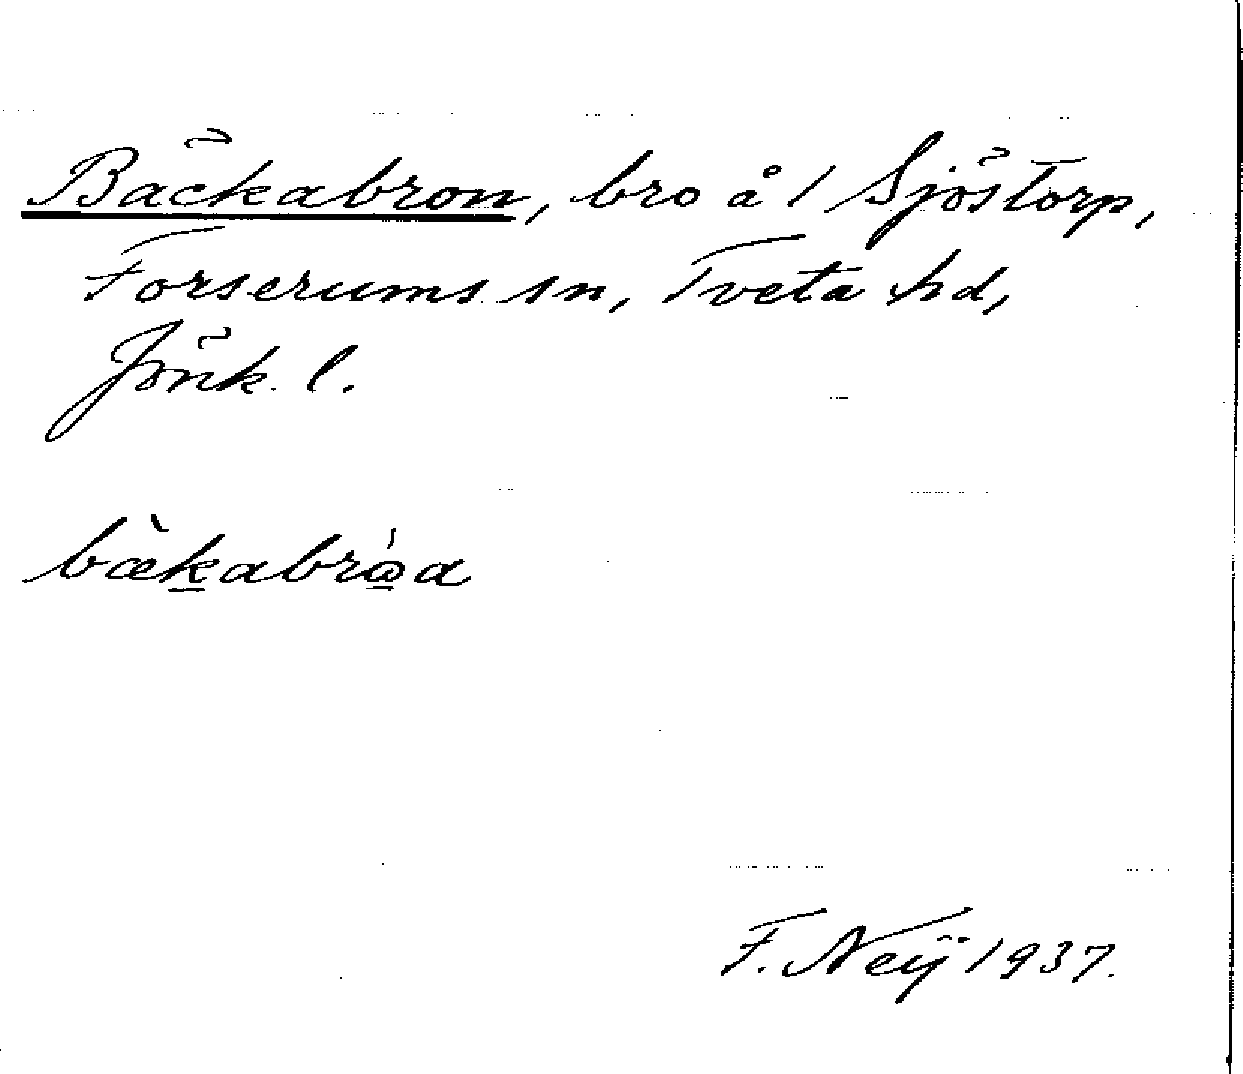 Bäckabron, bro å 1 Sjöstorp,
Forserums sn, Tveta hd,
Jönk. l.
bæ̀kabrò̱a
F. Neij 1937.